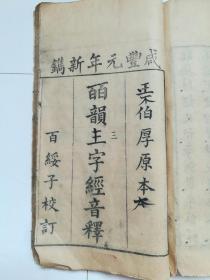 咸豐元年新鐫
伯厚原本
皕韻主字經音釋
三
百綏子校訂